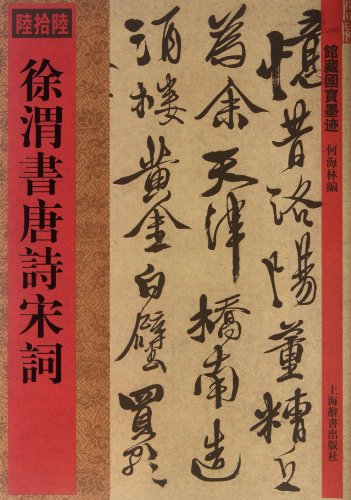 陸拾陸
徐渭書唐詩宋詞
館藏國寶墨迹
何海林編
憶昔洛陽董糟丘
為余天津橋南造
酒樓黃金白璧買歌
上海辭書出版社